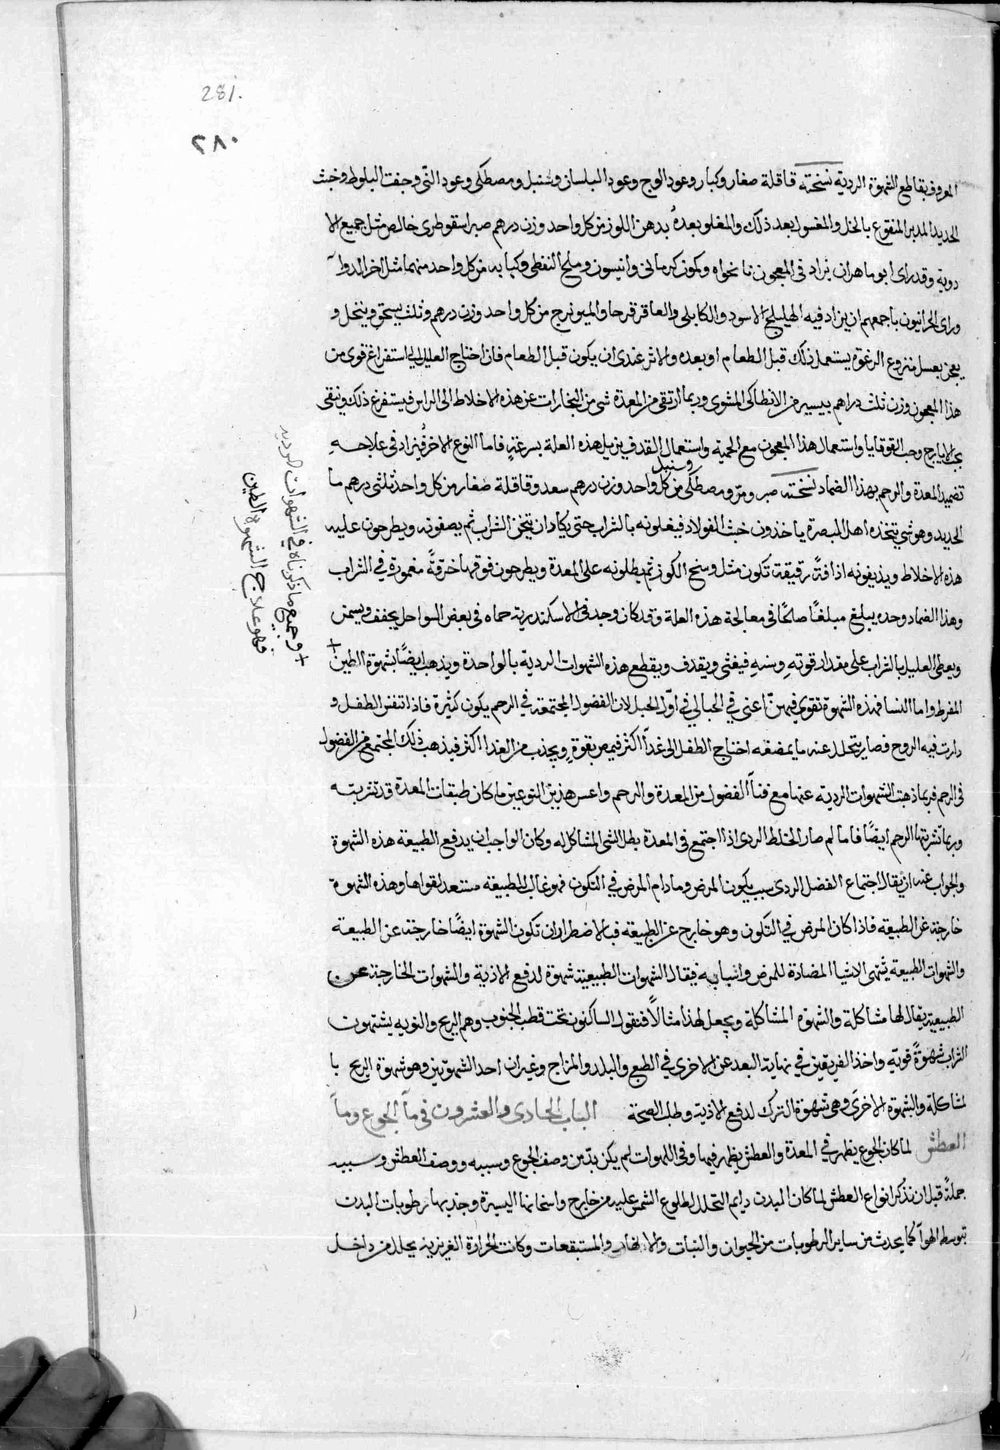 281.
٢٨٠
المعروف بقاطع الشهوة الردية نسخته قاقلة صغار وكبار وعود الوج وعود البلسان وسنبل ومصطكى وعود التى وجفت البلوط وخبث
الحديد المدبر المنقوع بالخل والمغسول بعد ذلك والمغلو بعده بدهن اللوز من كل واحد وزن درهم صبر اسقوطرى خالص مثل جميع الا
دوية وقد راى ابو ماهر ان يزاد فى المعجون نانخواه وكمون كرمانى وانيسون وملح النفطى وكبابه من كل واحد منهما مثل اخر الدوا
وراى الحرانيون باجمعهم ان يزاد فيه الهليلج الاسود والكابلى والعاقرقرحا والميويزج من كل واحد وزن درهم وثلث يسحق وينخل و
يعجن بعسل منزوع الرغوة يستعمل ذلك قبل الطعام او بعده والاثر عندى ان يكون قبل الطعام فان احتاج العليل الى استفراغ قوى من
هذا المعجون وزن ثلث دراهم بيسير من الانطاكى المشوى وربما ارتقى من المعدة شى من البخارات عن هذه الاخلاط الى الراس فيستفرغ ذلك وينقى
بحب الايارج وحب القوقايا واستعمال هذا المعجون مع الحمية واستعمال القذف يزيل هذه العلة بسرعة فاما النوع الاخر فيزاد فى علاجه
تضميد المعدة والرحم بهذا الضماد نسخته صبر ومر ومصطكى من كل واحد وزن درهم سعد وقاقلة صغار من كل واحد ثلثى درهم ما
الحديد وهو شى يتخذه اهل البصرة ياخذون خبث الفولاد فيغلونه بالشراب حتى يكاد ان يثخن الشراب ثم يصفونه ويطرحون عليه
هذه الاخلاط ويذيفونه اذافة رقيقة تكون مثل وسخ الكوز ثم يطلونه على المعدة ويطرحون فوقها خرقة مغموزة فى الشراب
وهذا الضماد وحده يبلغ مبلغا صالحا فى معالجة هذه العلة وقد كان وجد فى الاسكندرية حماه فى بعض السواحل يجفف ويسمن
ويعطى العليل بالشراب على مقدار قوته وسنه فيغثى ويقذف ويقطع هذه الشهوات الردية بالواحدة ويذهب ايضا بشهوة الطين
المفرط واما النسا فهذه الشهوة تقوى فيهن اعنى فى الحبالى فى اول الحبل لان الفضول المجتمعة فى الرحم يكون كثيرة فاذا تنفس الطفل و
دارت فيه الروح فصار يتحلل عنه ما يمضغه احتاج الطفل الى غدا اكثر فيمص بقوة ويجذب من الغدا اكثر فيذهب ذلك المجتمع من الفضول
فى الرحم فربما ذهبت الشهوات الردية عنها مع فنا الفضول من المعدة والرحم واعسر هذين النوعين ما كان طبقات المعدة قد تشربته
وربما تشربتها الرحم ايضا فاما لم صار الخلط الردى اذا اجتمع فى المعدة يطلب الشى المشاكل له وكان الواجب ان يدفع الطبيعة هذه الشهوة
والجواب عنه ان يقال اجتماع الفضل الردى سبب يكون المرض وما دام المرض فى التكون فهو غالب للطبيعه مستعد لقواها وهذه الشهوة
خارجة عن الطبيعة فاذا كان المرض فى التكون وهو خارج عن الطبيعة فبالاضطرار ان تكون الشهوة ايضا خارجة عن الطبيعة
والشهوات الطبيعة يشتهى الاشيا المضادة للمرض واسبابه فيقال الشهوات الطبيعية شهوة لدفع الاذية والشهوات الخارجة عن
الطبيعية يقال لها مشاكلة والشهوة المشاكلة ويجعل لهذا مثالا فنقول الساكنون تحت قطب الجنوب وهم الزنج والنوبه يشتهون
الشراب شهوة قوية واخذ الفريقين فى نهاية البعد عن الاخرى فى الطبع والبلد والمزاج وغير ان احد الشهوتين وهو شهوة الزنج با
لمشاكلة والشهوة الاخرى وهى شهوة الترك لدفع الاذية وطلب الصحة الباب الحادى والعشرون فى ما الجوع وما
العطش لما كان الجوع يظهر فى المعدة والعطش يظهر فيها وفى اللهوات لم يكن بد من وصف الجوع وسببه ووصف العطش وسببه
جملة قبل ان نذكر انواع العطش لما كان البدن دايم التحلل لطلوع الشمس عليه من خارج واسخانها اليسيرة وجذبها رطوبات البدن
بتوسط الهوا كما يحدث من ساير الرطوبات من الحيوان والنبات والانهار والمستنقعات وكانت الحرارة الغريزية يحلل من داخل
وجميع ما ذكرناه فى الشهوات الردية
فهو علاج الشهوة الطين